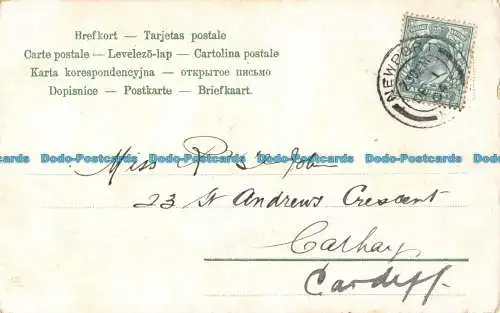 Brefkort — Tarjetas postale
Carte postale — Levelező-lap — Cartolina postale
Karta korespondencyjna — открытое письмо
Dopisnice — Postkarte — Briefkaart.
NEWPORT
Dodo-Postcards Dodo-Postcards Dodo-Postcards Dodo-Postcards Dodo-Postcards Dodo-Postcards
Miss
23 St Andrews Crescent
Cathay
Cardiff.